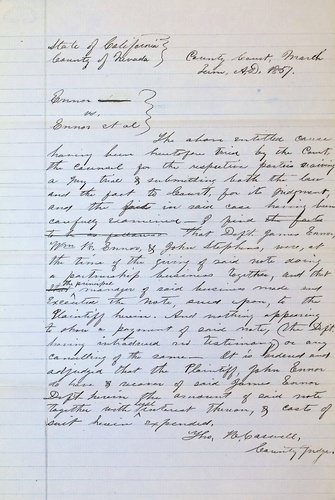 State of California }
County of Nevada }
County Court, March
Term, A.D. 1857.
Ennor
vs.
Ennor et al }
The above entitled cause
having been heretofore tried by the Court,
the Council for the respective parties waiving
a Jury trial & submitting both the law
and the fact to Court, for its Judgment,
and the facts in said case having been
carefully examined — I find the facts
to be as follows That Defts. James Ennor,
Wm H. Ennor, & John Stephens, were, at
the time of the giving of said note doing
a partnership business together, and that
the principal manager of said business made and
Executed the Note, sued upon, to the
Plaintiff herein. And nothing appearing
to show a payment of said note, (the Deft.
having introduced no testimony) or any
cancelling of the same — It is ordered and
adjudged that the Plaintiff, John Ennor
do have & recover of said James Ennor
Deft. herein the amount of said note
together with interest thereon, & costs of
suit herein expended.
Tho. H. Caswell,
County Judge